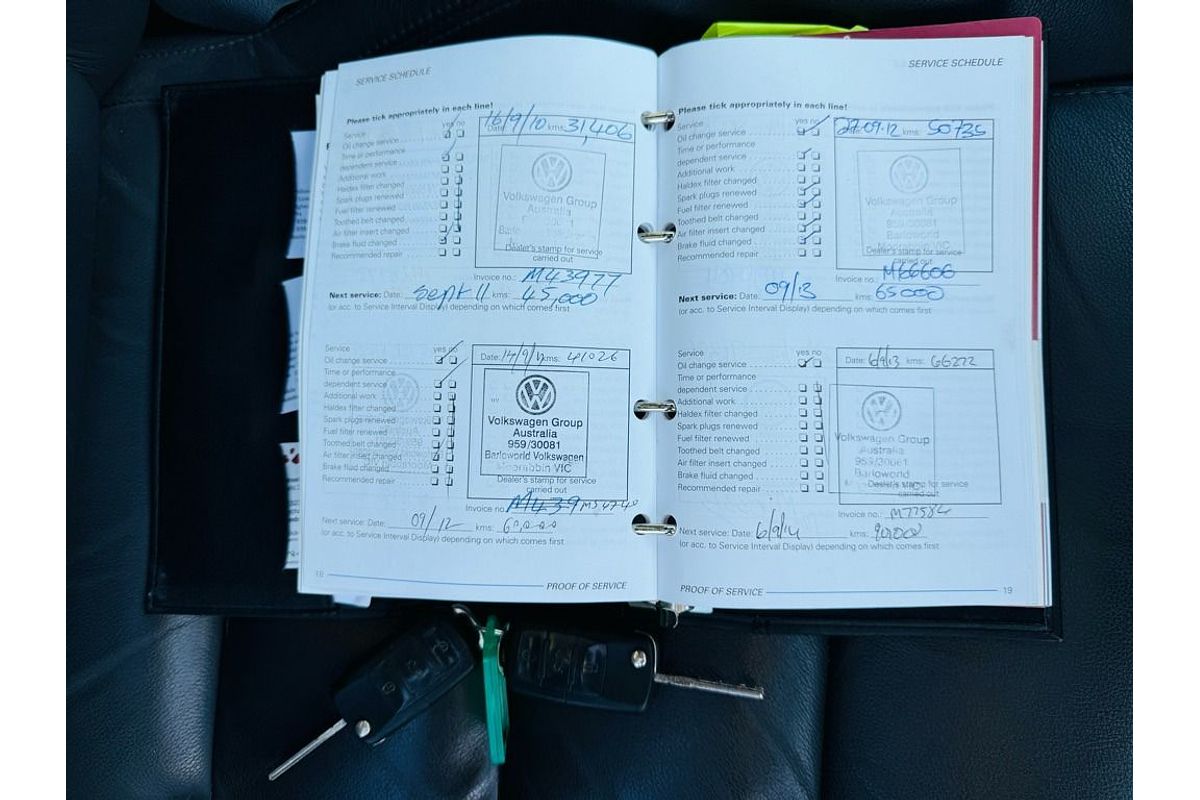 SERVICE SCHEDULE
Please tick appropriately in each line!
Service yes no
Oil change service
Time or performance
dependent service
Additional work
Haldex filter changed
Spark plugs renewed
Fuel filter renewed
Toothed belt changed
Air filter insert changed
Brake fluid changed
Recommended repair
Date: 16/9/10 kms: 31,406
Volkswagen Group
Australia
Dealer's stamp for service
carried out
Invoice no.: M43977
Next service: Date: Sept 11 kms: 45,000
(or acc. to Service Interval Display) depending on which comes first
Service yes no
Oil change service
Time or performance
dependent service
Additional work
Haldex filter changed
Spark plugs renewed
Fuel filter renewed
Toothed belt changed
Air filter insert changed
Brake fluid changed
Recommended repair
Date: 14/9/ kms: 41026
Volkswagen Group
Australia
959/30081
Barloworld Volkswagen
Moorrabbin VIC
Dealer's stamp for service
carried out
Invoice no.: M439
Next service: Date: 09/12 kms: 60,000
(or acc. to Service Interval Display) depending on which comes first
18 PROOF OF SERVICE
SERVICE SCHEDULE
Please tick appropriately in each line!
Service yes no
Oil change service
Time or performance
dependent service
Additional work
Haldex filter changed
Spark plugs renewed
Fuel filter renewed
Toothed belt changed
Air filter insert changed
Brake fluid changed
Recommended repair
Date: 27.09.12 kms: 50735
Volkswagen Group
Australia
Barloworld
VIC
Dealer's stamp for service
carried out
Invoice no.: M66606
Next service: Date: 09/13 kms: 65000
(or acc. to Service Interval Display) depending on which comes first
Service yes no
Oil change service
Time or performance
dependent service
Additional work
Haldex filter changed
Spark plugs renewed
Fuel filter renewed
Toothed belt changed
Air filter insert changed
Brake fluid changed
Recommended repair
Date: 6/9/13 kms: 66222
Volkswagen Group
Australia
959/30081
Barloworld
Dealer's stamp for service
carried out
Invoice no.: M77582
Next service: Date: 6/9/14 kms:
(or acc. to Service Interval Display) depending on which comes first
PROOF OF SERVICE 19